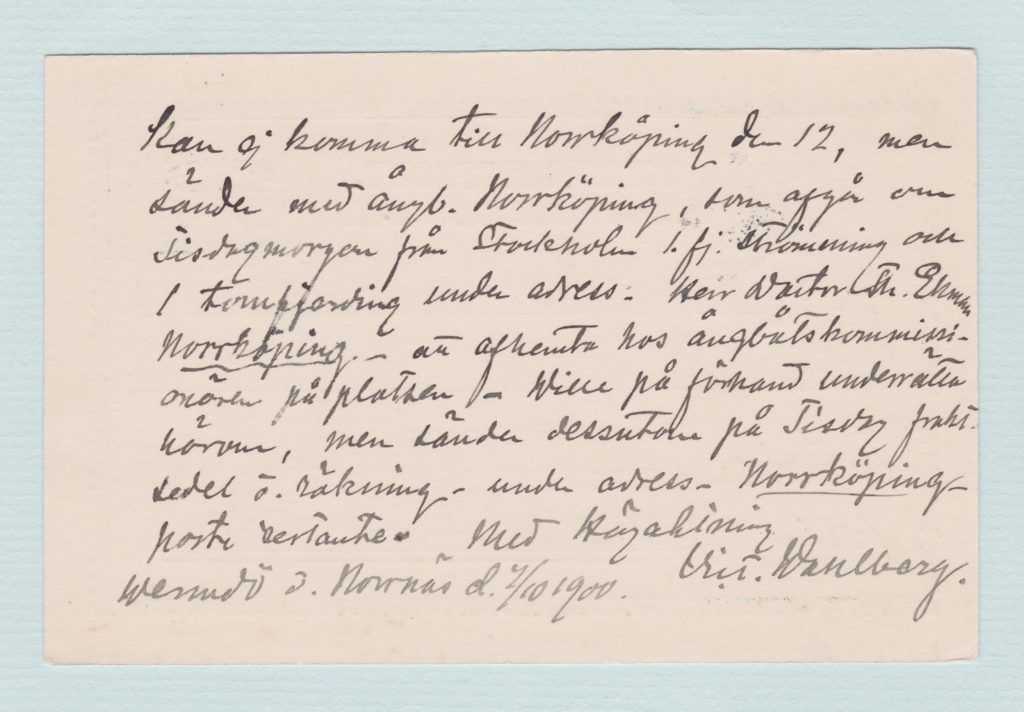 Kan ej komma till Norrköping den 12, men
sänder med ångb. Norrköping, som afgår om
Tisdagmorgon från Stockholm 1. fj. strömming och
1 tomfjerding under adress. Herr Doctor Th. Ekman
Norrköping. – att afhemta hos ångbåtskommissi-
onären på platsen – Ville på förhand underrätta
härom, men sänder dessutom på Tisdag frakt-
sedel o. räkning – under adress – Norrköping –
poste restante. Med Högaktning
Wermdö o. Norrnäs d. 7/10 1900. Vict. Wahlberg.